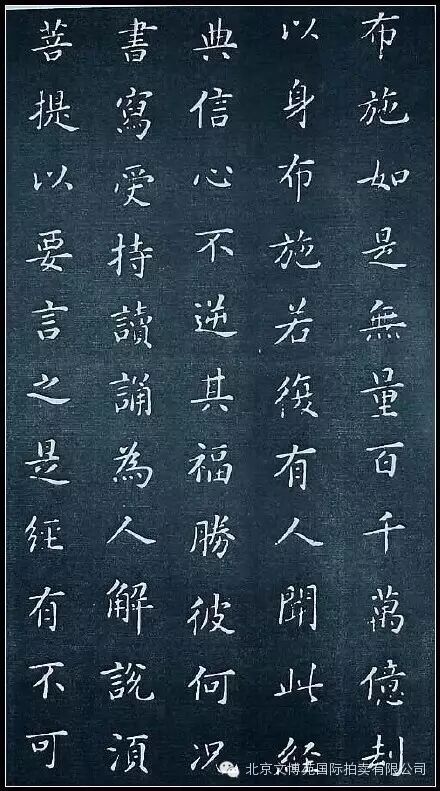 布施如是無量百千萬億刦
以身布施若復有人聞此經
典信心不逆其福勝彼何况
書寫受持讀誦為人解說須
菩提以要言之是經有不可
北京文博苑国际拍卖有限公司